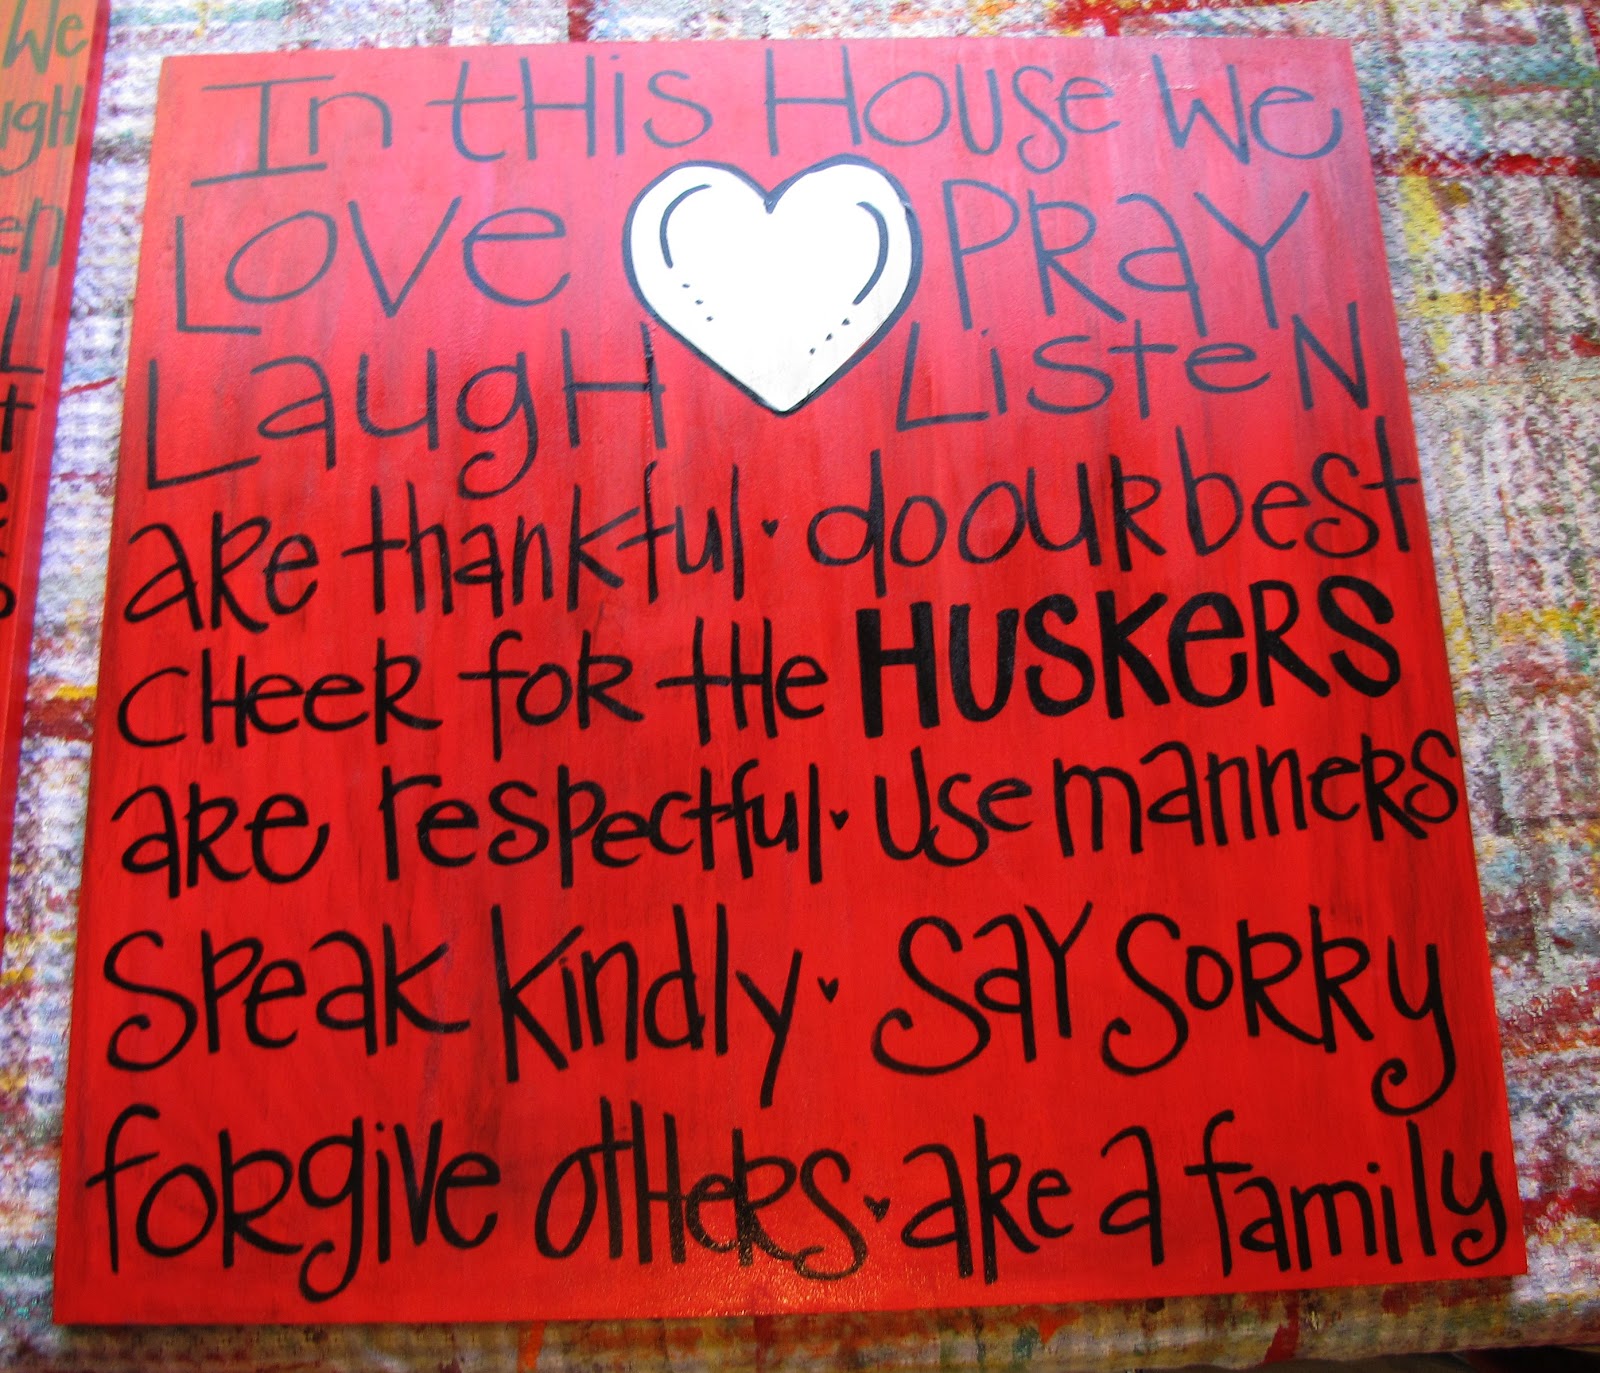 In tHis House We
Love PRaY
LaugH ListeN
aRe thankful · do ouR best
CHeeR foR the HUSKeRS
aRe respectful · Use manneRs
Speak kindly · SaY SoRRy
foRgive otHeRS · aRe a family
We
ugH
en
L
t